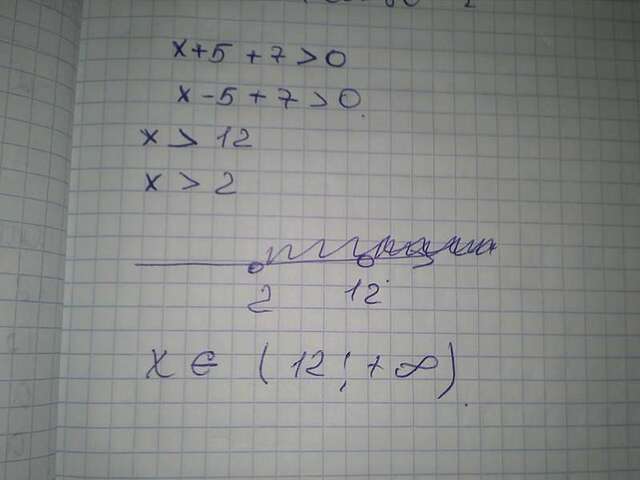 x+5+7>0
x-5+7>0.
x > 12
x > 2
2 12
x ∈ (12;+∞).